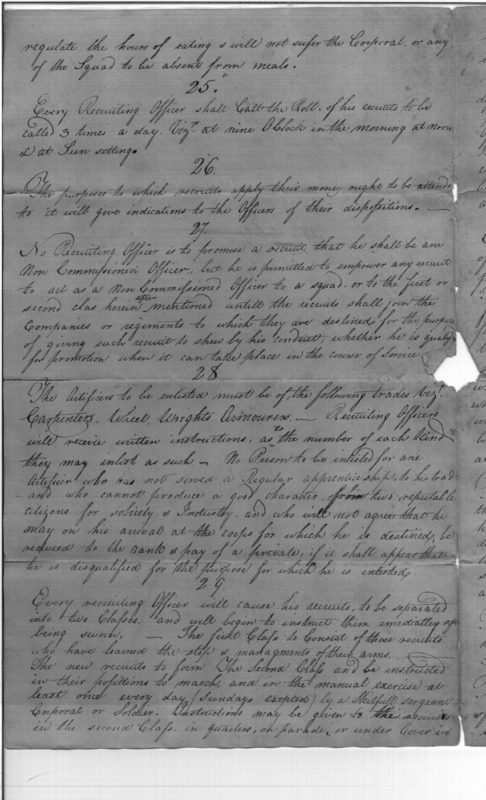 regulate the hours of eating & will not sufer the Corporal. or any
of the Squad to be absent from meals.
25.
Every Recruiting Officer shall Call the Roll. of his recruits to be
called 3 times a day. Vizt. at nine OClock in the morning at noon
& at Sun setting.
26
The purposes to which recruits apply their money ought to be attende
to it will give indications to the Officers of their dispositions. —
27.
No Recruiting Officer is to promise a recruit, that he shall be are
Non Commissioned Officer, but he is permitted to empower any recruit
to act as a Non Commissioned Officer to a squad. or to the first or
second clas herein after mentioned untill the recruits shall join the
Companies or regements to which they are destined, for the purpose
of giving such recruit to shew by his conduct, whether he is
for promotion when it can take place in the course of Service
28
The Artificers to be enlisted must be of, the following trades Vizt.
Carpenters. Wheel, Wrights Armourers. — Recruiting Officers
will receive written instructions, as to the number of each Kind
they may inlist as such — No Person to be inlisted for are
Artificer who has not served a Regular apprenticeship, to his trad
and who cannot produce a good character, from two, reputable
citizens for sobriety & Industry. and who will not agree that he
may on his arrival at the corps for which he is destined, be
reduced to the rank & pay of a private, if it shall appear that
he is disqualified for the purpose for which he is intended
29
Every recruiting Officer will cause his recruits, to be separated
into two Classes. and will begin to instruct them imediatley
being sworn, — The first Class to Consist of those recruits
who have learned the step & managments of their arms. —
The new recruits to form The Second Class and be instructed
in their positions to march, and in the manual exercise at
least once every day, (Sundays exepted) by a Skilfull Sergeant
Corporal or Soldier. Instructions may be given to the recruits
in the second Class. in quarters, on parade, or under Cover in